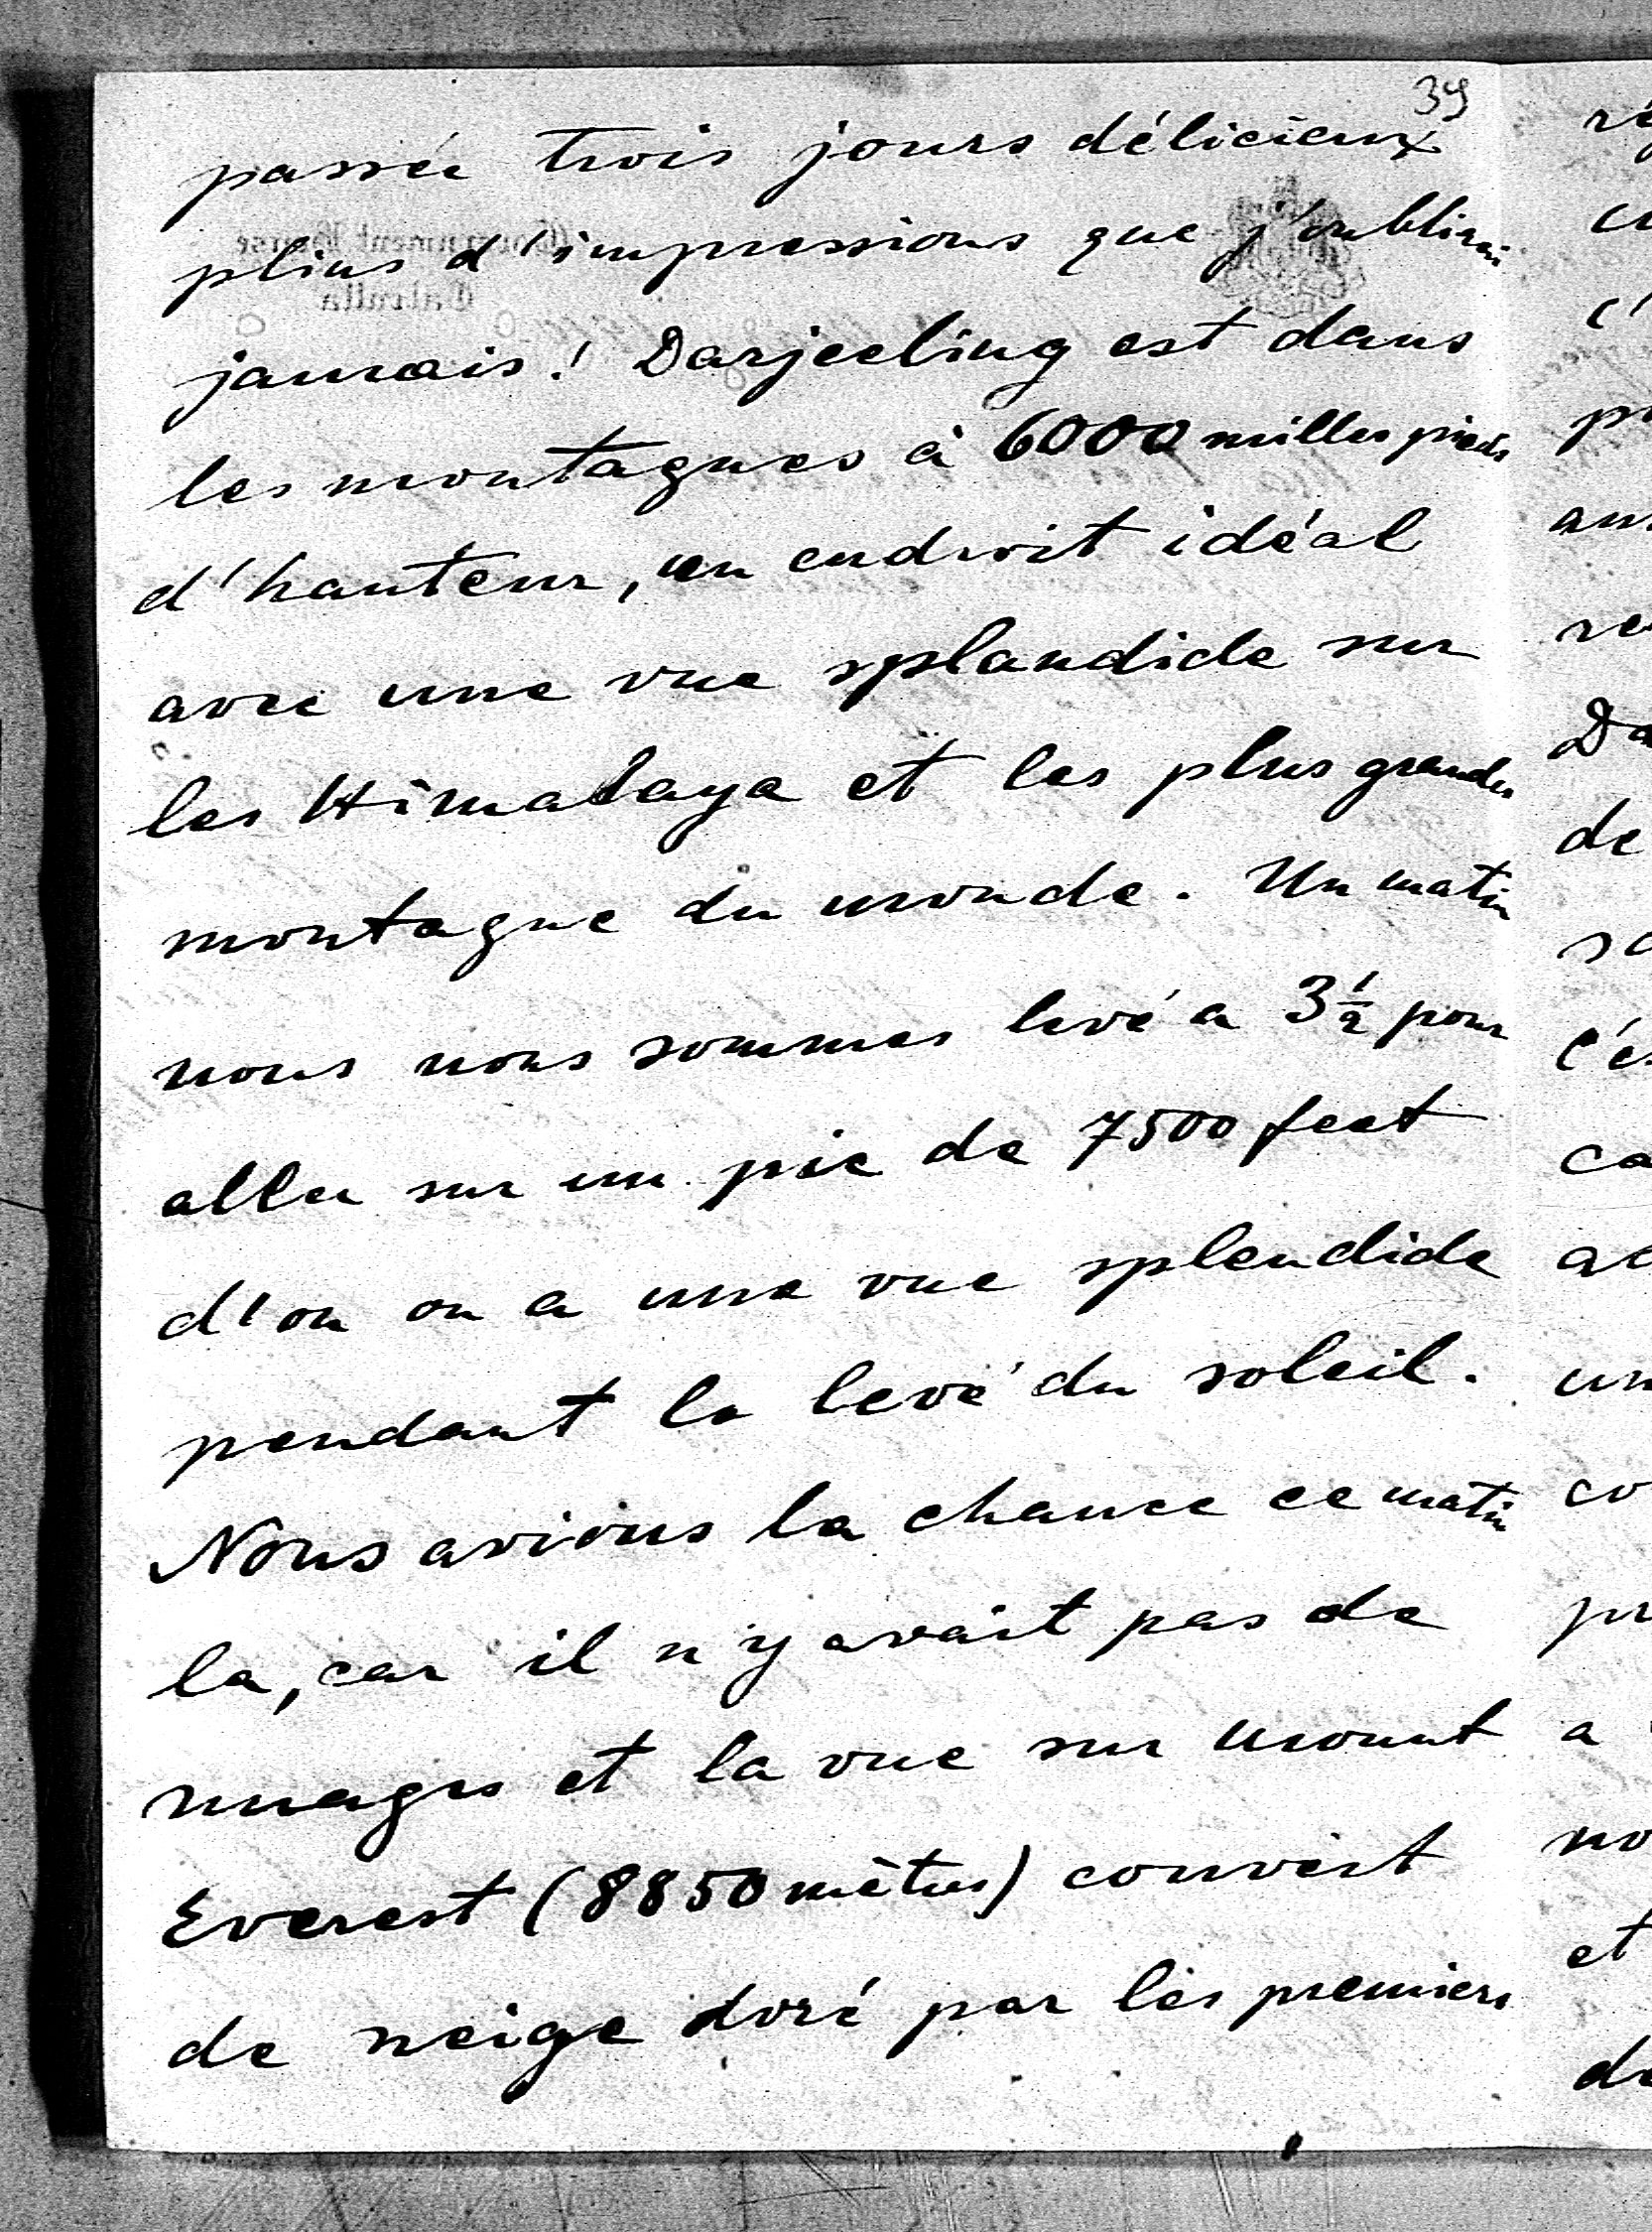 39
passée trois jours délicieux
plins d'impressions que j'oublirai
jamais! Darjeeling est dans
les montagnes à 6000 milles pieds
d'hauteur, un endroit idéal
avec une vue splandide sur
les Himalaya et les plus grandes
montagne du monde. Un matin
nous nous sommes levé a 3½ pour
aller sur un pic de 7500 feet
d'ou on a une vue splendide
pendant le levé du soleil.
Nous avions la chance ce matin
la, car il n'y avait pas de
nuages et la vue sur mount
Everest (8850 mètres) couvert
de neige doré par les premiers
Government House
Calcutta